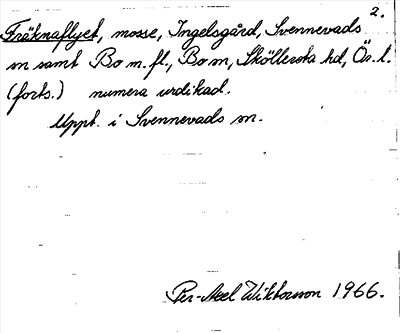 2.
Fräknaflyet, mosse, Ingelsgård, Svennevads
sn samt Bo m.fl., Bo sn, Sköllersta hd, Ör. l.
(forts.) numera urdikad.
Uppt. i Svennevads sn.
Per-Axel Wiktorsson 1966.